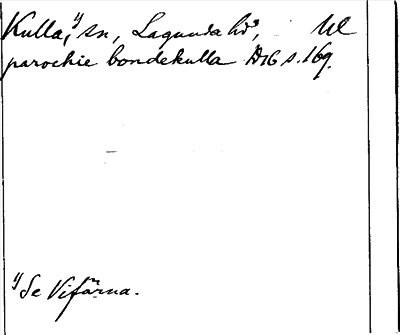 Kulla,¹⁾ sn, Lagunda hd, Ul
parochie bondekulla DrG s. 169.
¹⁾ Se Vifärna.